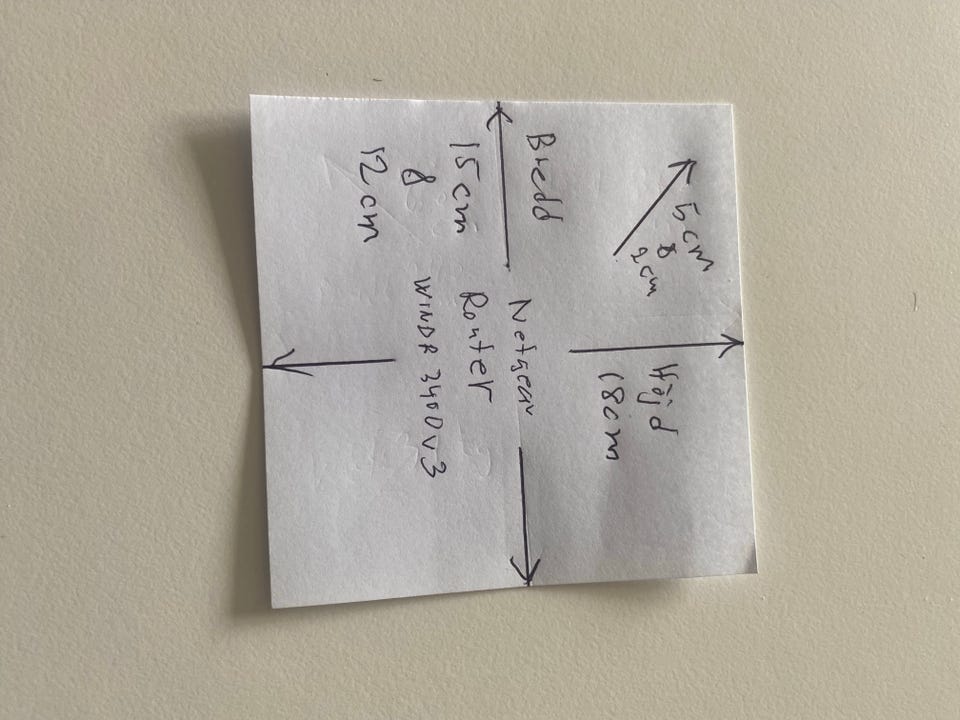 5cm
&
2cm
Höjd
18cm
Bredd
15cm
&
12cm
Netgear
Router
WINDR 3400v3